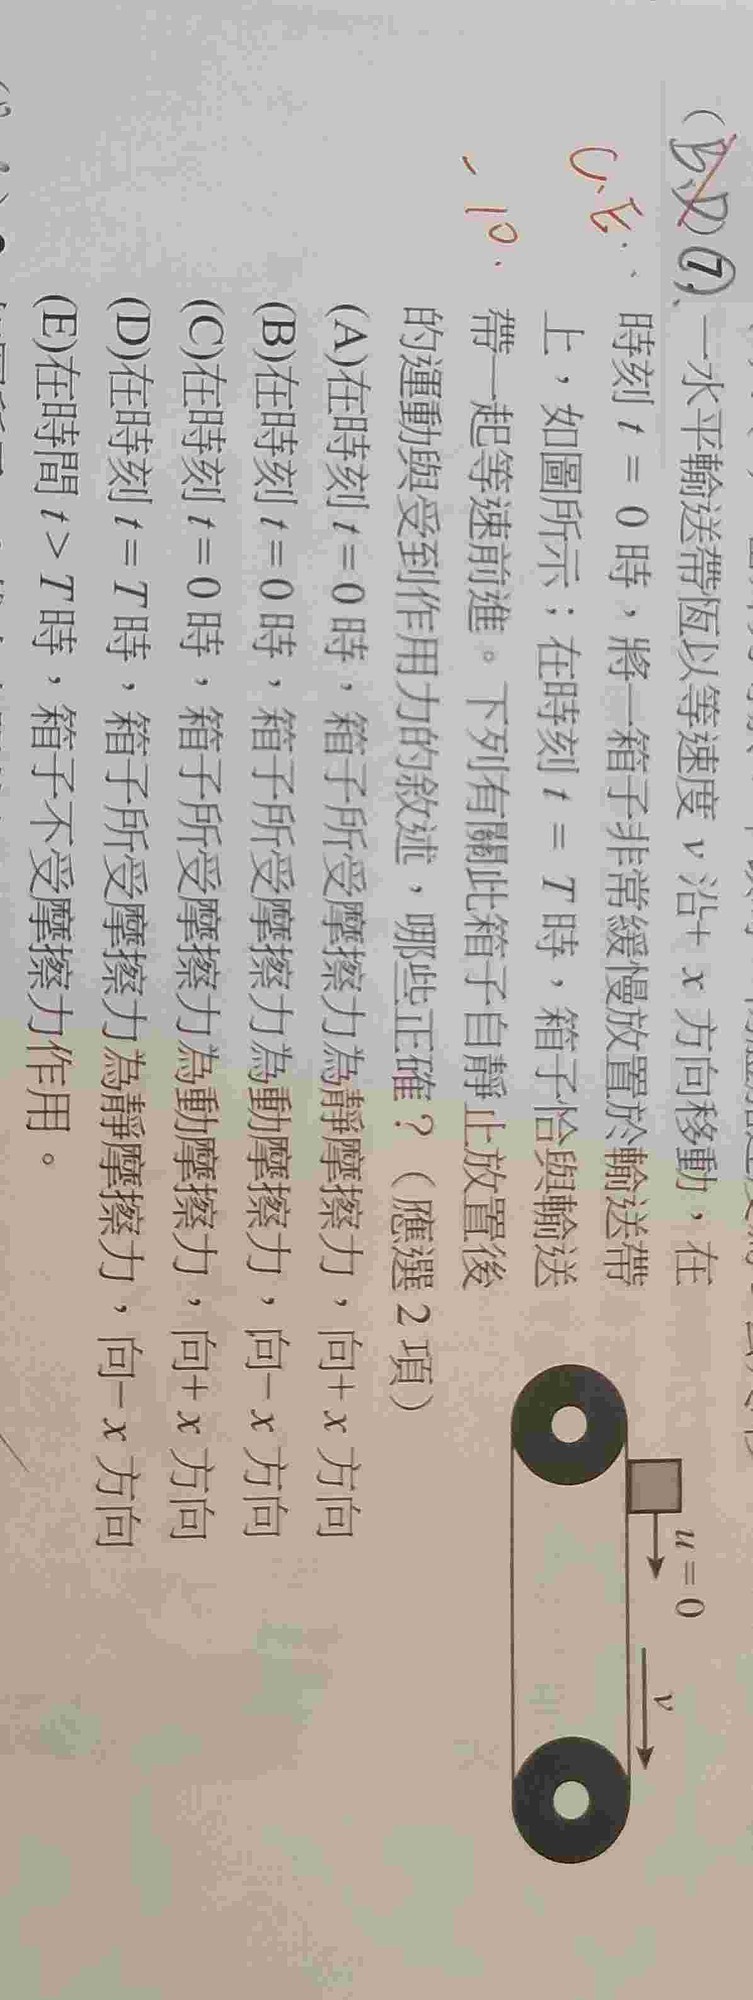 (B、D) 7、一水平輸送帶恆以等速度 v 沿+ x 方向移動，在
時刻 t = 0 時，將一箱子非常緩慢放置於輸送帶
上，如圖所示；在時刻 t = T 時，箱子恰與輸送
帶一起等速前進。下列有關此箱子自靜止放置後
的運動與受到作用力的敘述，哪些正確？（應選 2 項）
(A)在時刻 t = 0 時，箱子所受摩擦力為靜摩擦力，向+ x 方向
(B)在時刻 t = 0 時，箱子所受摩擦力為動摩擦力，向− x 方向
(C)在時刻 t = 0 時，箱子所受摩擦力為動摩擦力，向+ x 方向
(D)在時刻 t = T 時，箱子所受摩擦力為靜摩擦力，向− x 方向
(E)在時間 t > T 時，箱子不受摩擦力作用。
C.E.
-10.
u = 0
v